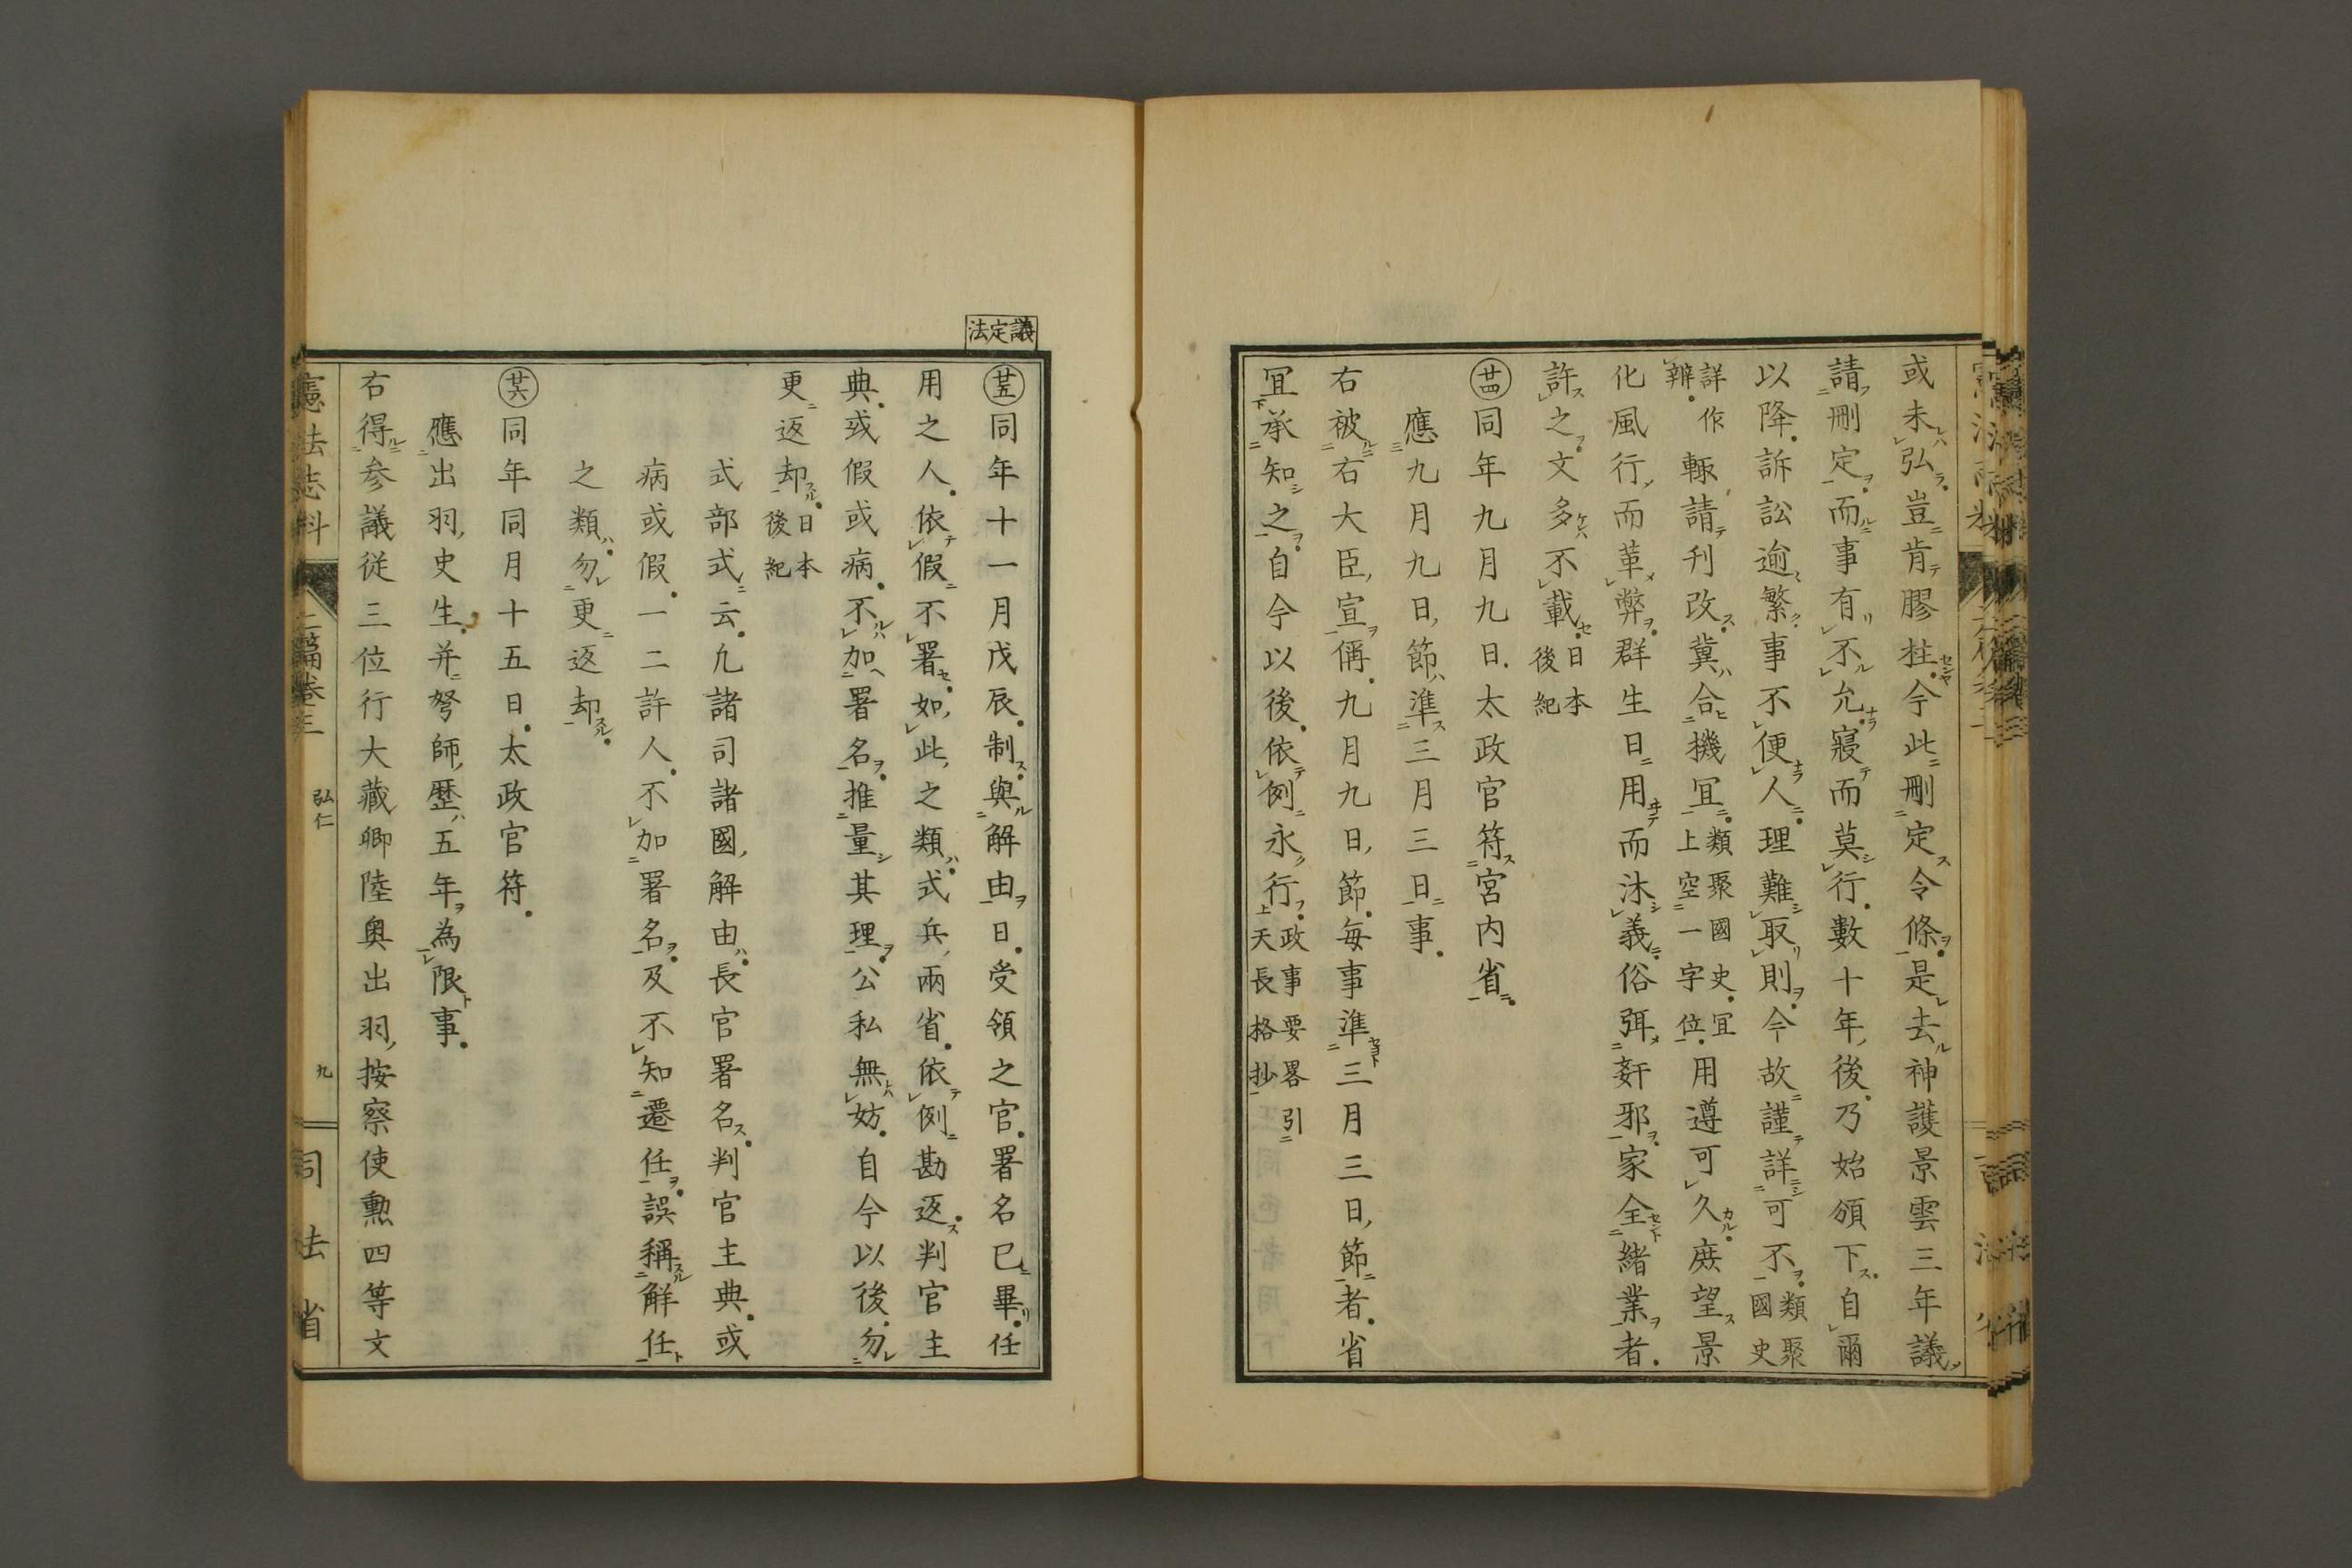 或未弘豈肯膠柱今此刪定令條是去神護景雲三年議
請刪定而事有不允寢而莫行數十年後乃始頒下自爾
以降訴訟逾繁事不便人理難取則今故謹詳可不類聚國史
詳作辨輙請刊改冀合機冝類聚國史冝上空一字位用遵可久庶望景
化風行而革弊群生日用而沐義俗弭姧邪家全緒業者
許之文多不載日本後紀
廿四同年九月九日太政官符宮内省
應九月九日節準三月三日事
右被右大臣宣偁九月九日節每事準三月三日節者省
冝承知之自今以後依例永行政事要畧引天長格抄
議定法
廿五同年十一月戊辰制與解由日受領之官署名已畢任
用之人依假不署如此之類式兵兩省依例勘返判官主
典或假或病不加署名推量其理公私無妨自今以後勿
更返却日本後紀
式部式云凢諸司諸國解由長官署名判官主典或
病或假一二許人不加署名及不知遷任誤稱解任
之類勿更返却
廿六同年同月十五日太政官符
應出羽史生并弩師歷五年為限事
右得參議從三位行大藏卿陸奥出羽按察使勲四等文
憲法志料
二篇卷三
弘仁
九
司法省